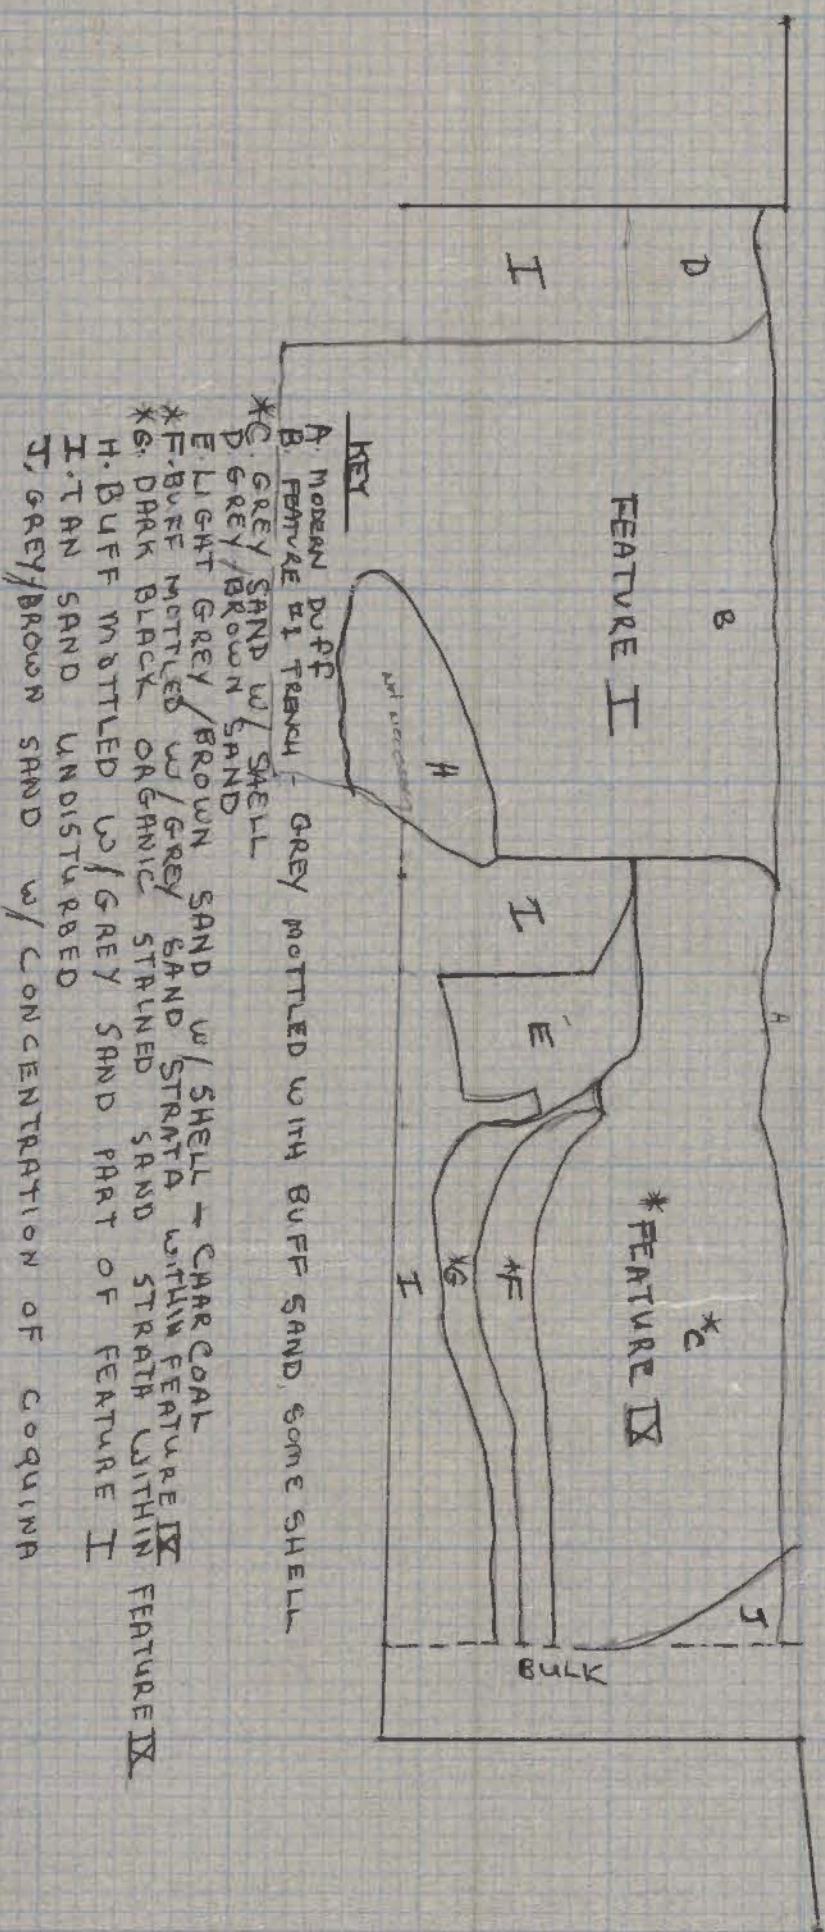 A
D
B
J
FEATURE I
*C
*FEATURE IX
I
I
E
*F
BULK
H
*G
I
KEY
A. MODERN DUFF
B. FEATURE #1 TRENCH - GREY MOTTLED WITH BUFF SAND, SOME SHELL
*C. GREY SAND W/ SHELL
D GREY/BROWN SAND
E LIGHT GREY/BROWN SAND W/ SHELL + CHARCOAL
*F. BUFF MOTTLED W/ GREY SAND STRATA WITHIN FEATURE IX
*G. DARK BLACK ORGANIC STAINED SAND STRATA WITHIN FEATURE IX
H. BUFF MOTTLED W/ GREY SAND PART OF FEATURE I
I. TAN SAND UNDISTURBED
J. GREY/BROWN SAND W/ CONCENTRATION OF COQUINA